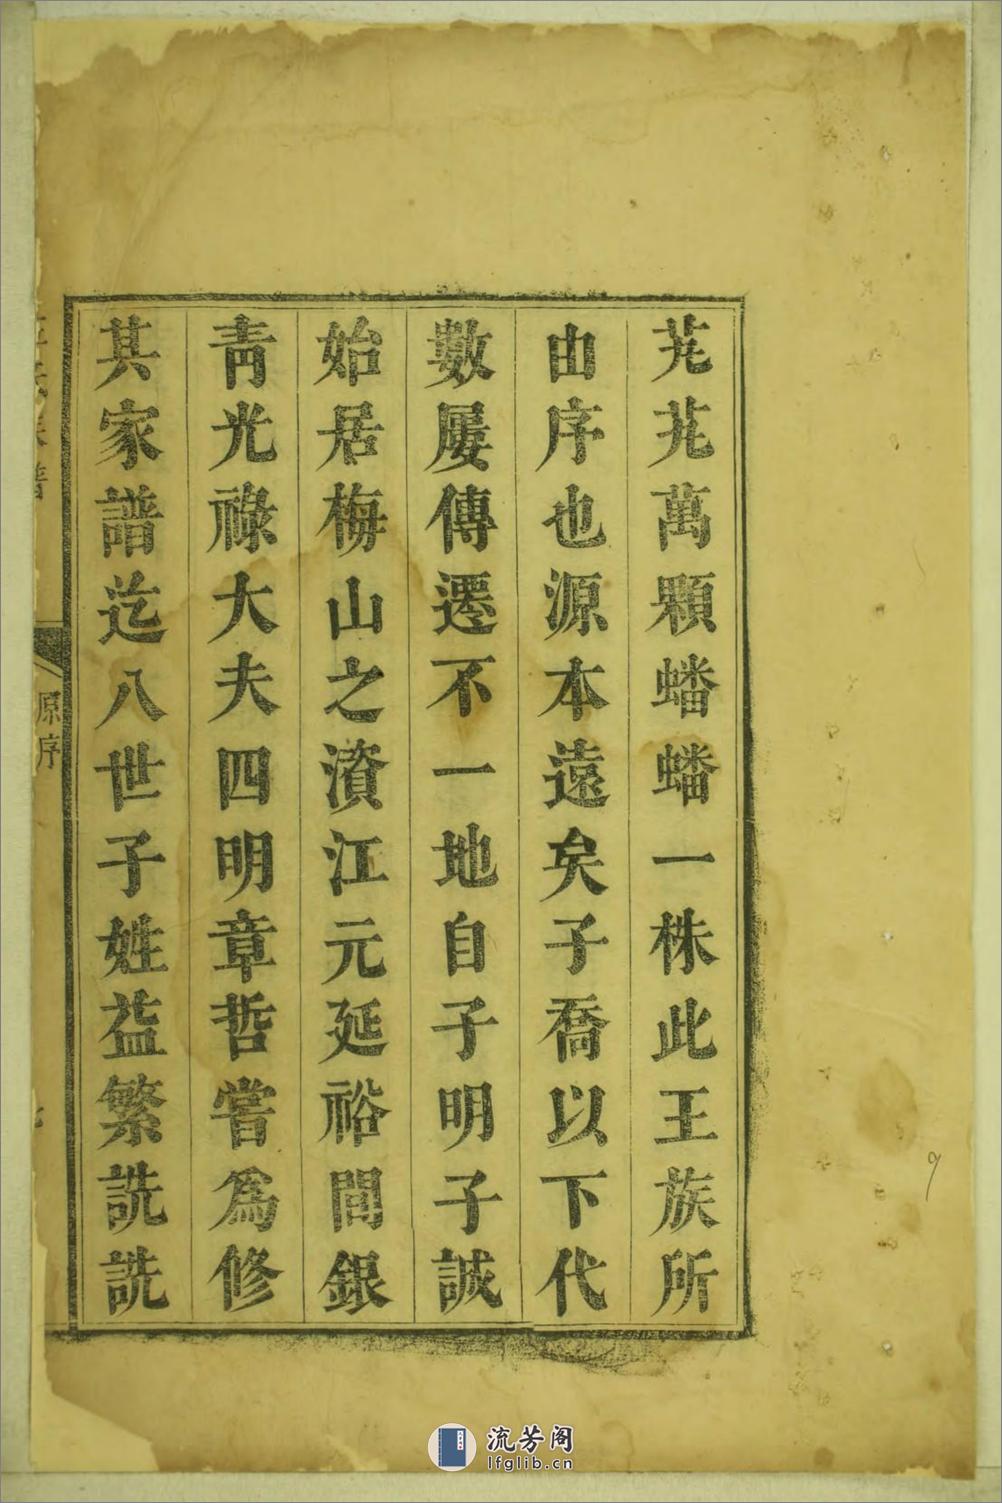 芃芃萬顆蟠蟠一株此王族所
由序也源本遠矣子喬以下代
數屢傳遷不一地自子明子誠
始居梅山之濱江元延裕間銀
青光祿大夫四明章哲嘗爲修
其家譜迄八世子姓益繁詵詵
原序
流芳阁
lfglib.cn